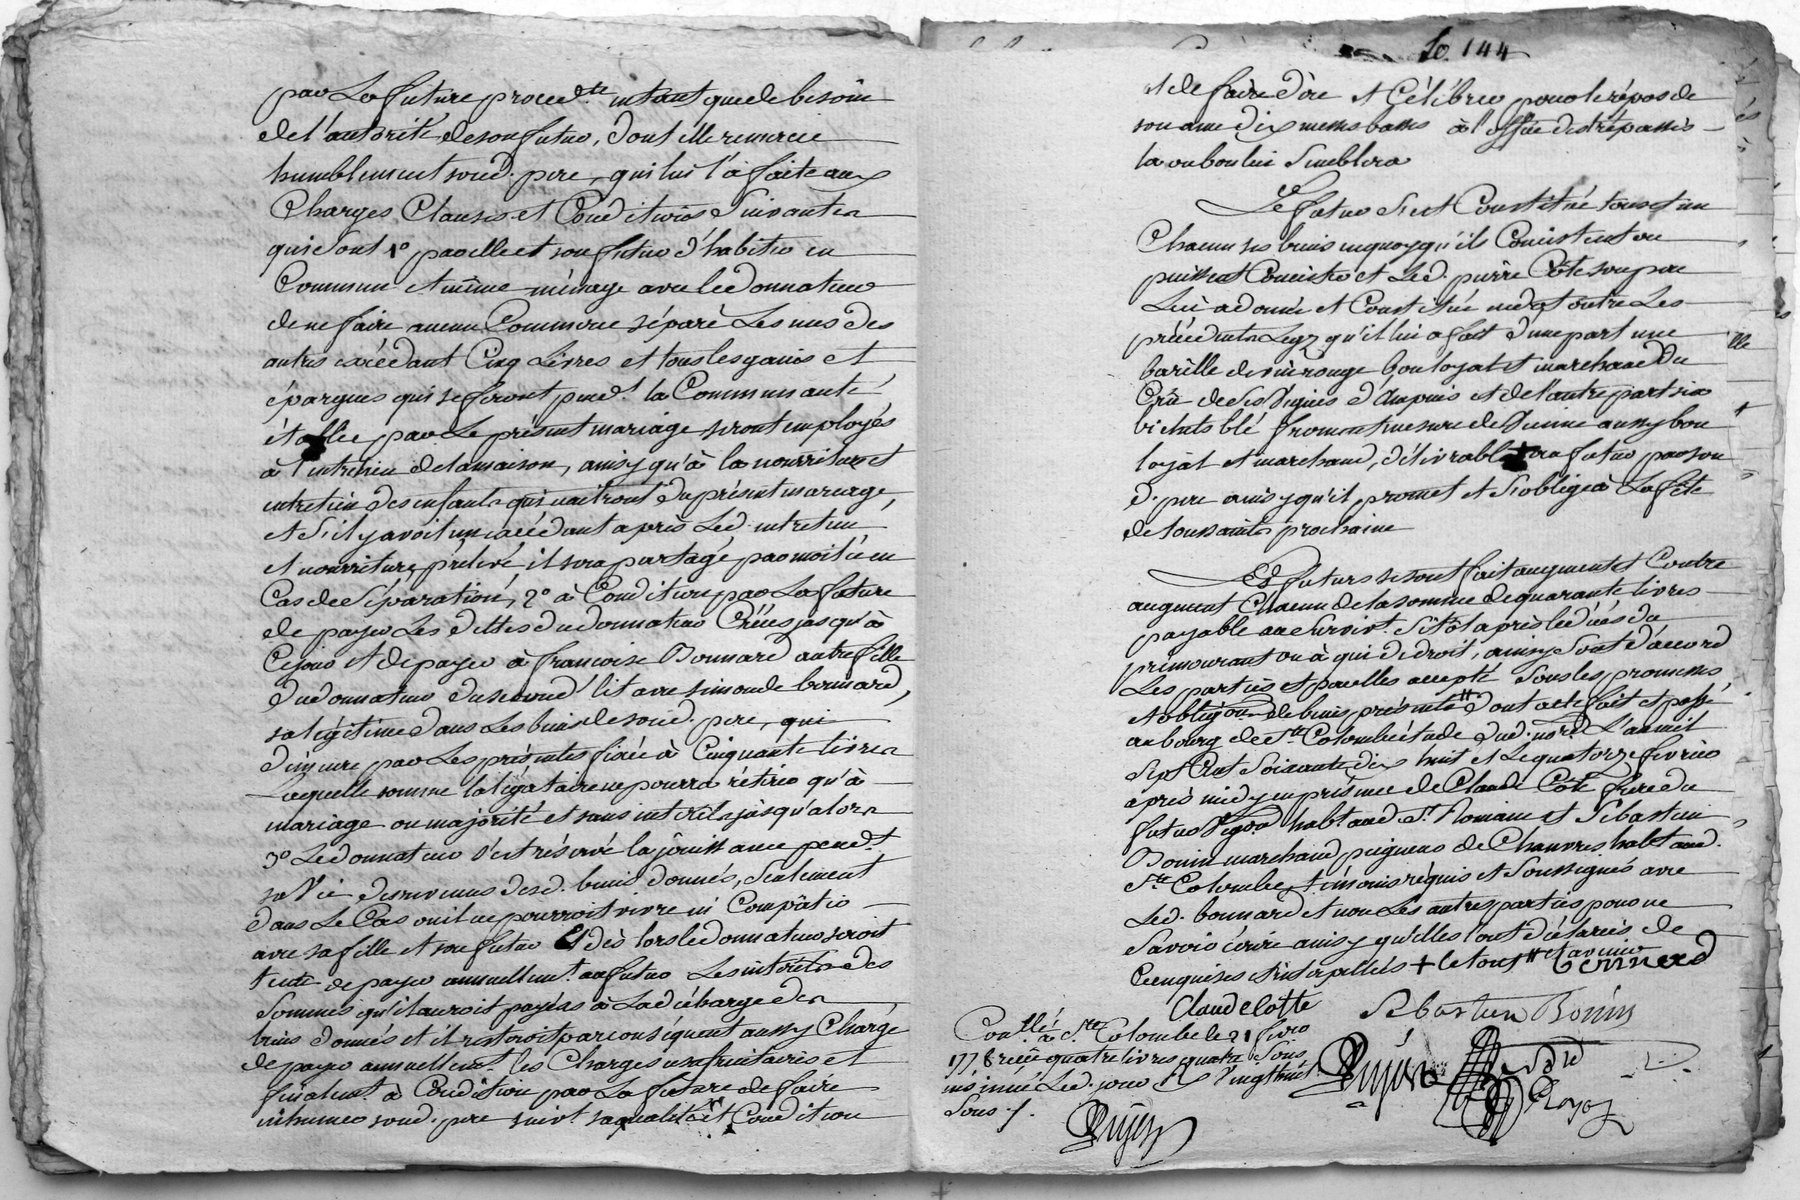 par La future proced.te entant que de besoin
de l'autorité de son futur, dont elle remercie
humblement soud. pere, qui lui l'a faite aux
Charges Clauses et Conditions Suivantes
qui sont 1° par elle et son futur d'habiter en
Commun et même ménage avec le donnateur
de ne faire aucun Commerce séparé Les uns des
autres excédant Cinq Livres et tous les gains et
épargnes qui se feront pend.t la Communauté
établie par Le présent mariage seront employés
à l'entretien de la maison, ainsy qu'à la nourriture et
entretien des enfants qui naitront du présent mariage,
et s'il y avoit un excédant après Led. entretien
et nourriture prélevé il sera partagé par moitié en
Cas de Séparation, 2° à Condition par La future
de payer Les dettes du donnateur Créées jusqu'à
Ce jour et de payer à françoise Bonnard autre fille
du donnateur du second lit avec simonde bonnard,
sa légitime dans Les biens de soud. pere, qui
demeure par Les présentes fixée à Cinquante livres
Laquelle somme la légataire ne pourra retirer qu'à
mariage ou majorité et sans intérêts jusqu'alors
3° Le donnateur s'est réservé la jouissance pend.t
sa Vie des revenus desd. biens donnés, Seulement
dans Le Cas ou il ne pourroit vivre ni Compâtir
avec sa fille et son futur Et dès lors le donnateur seroit
tenu de payer annuellem.t au futur Les intérêts des
Sommes qu'il auroit payées à La décharge des
biens donnés et il resteroit par conséquent aussy Chargé
de payer annuellem.t les Charges usufruitaires et
finalem.t à Condition par La future de faire
inhumer soud. pere suiv.t sa qualité et Condition
fo. 144
et de faire dire et Célébrer pour le répos de
son ame dix messes basses à l'office des trépassés
la ou bon lui Semblera
Le futur s'est Constitué tous et un
Chacun ses biens en quoy qu'ils Consistent ou
puissent Consister et Led. pierre Côte son pere
Lui a donné et Constitué en dot outre Les
précédents Legs qu'il lui a fait d'une part une
barille de vin rouge bon loyal et marchand du
Crû de ses Vignes d'Ampuis et de l'autre part six
bichets blé froment mesure de Vienne aussy bon
loyal et marchand, délivrable au futur par son
d. pere ainsy qu'il promet et s'oblige à La fête
de toussaints prochaine
Les futurs se sont fait augment et Contre
augment Chacun de la somme de quarante livres
payable au Surviv.t Sitôt après le décès du
prémourant ou à qui de droit, ainsy Sont d'accord
Les parties et par elles accepté Sous les promesses
et obligãons de biens présents # dont acte fait et passé
au bourg de Ste Colombe étude dud. no.re L'an mil
Sept Cent Soixante dix huit et Le quatorze fevrier
après midy en présence de Claude Côte frere du
futur Vigron habt aud. St Romain et Sébastien
Bonin marchand peigneur de Chanvres habt aud.
Ste Colombe, témoins réquis et Soussignés avec
Led. bonnard et non Les autres parties pour ne
Savoir écrire ainsy qu'elles l'ont déclaré de
Ce enquises et interpellées + le tout # et avenir
bonnard
Claude Cotte
Sebastien Bonin
Con.llé à Ste Colombe le 21 fevr
1778 reçû quatre livres quatre Sous
insinué Led. jour Vingt huit
Sous /.